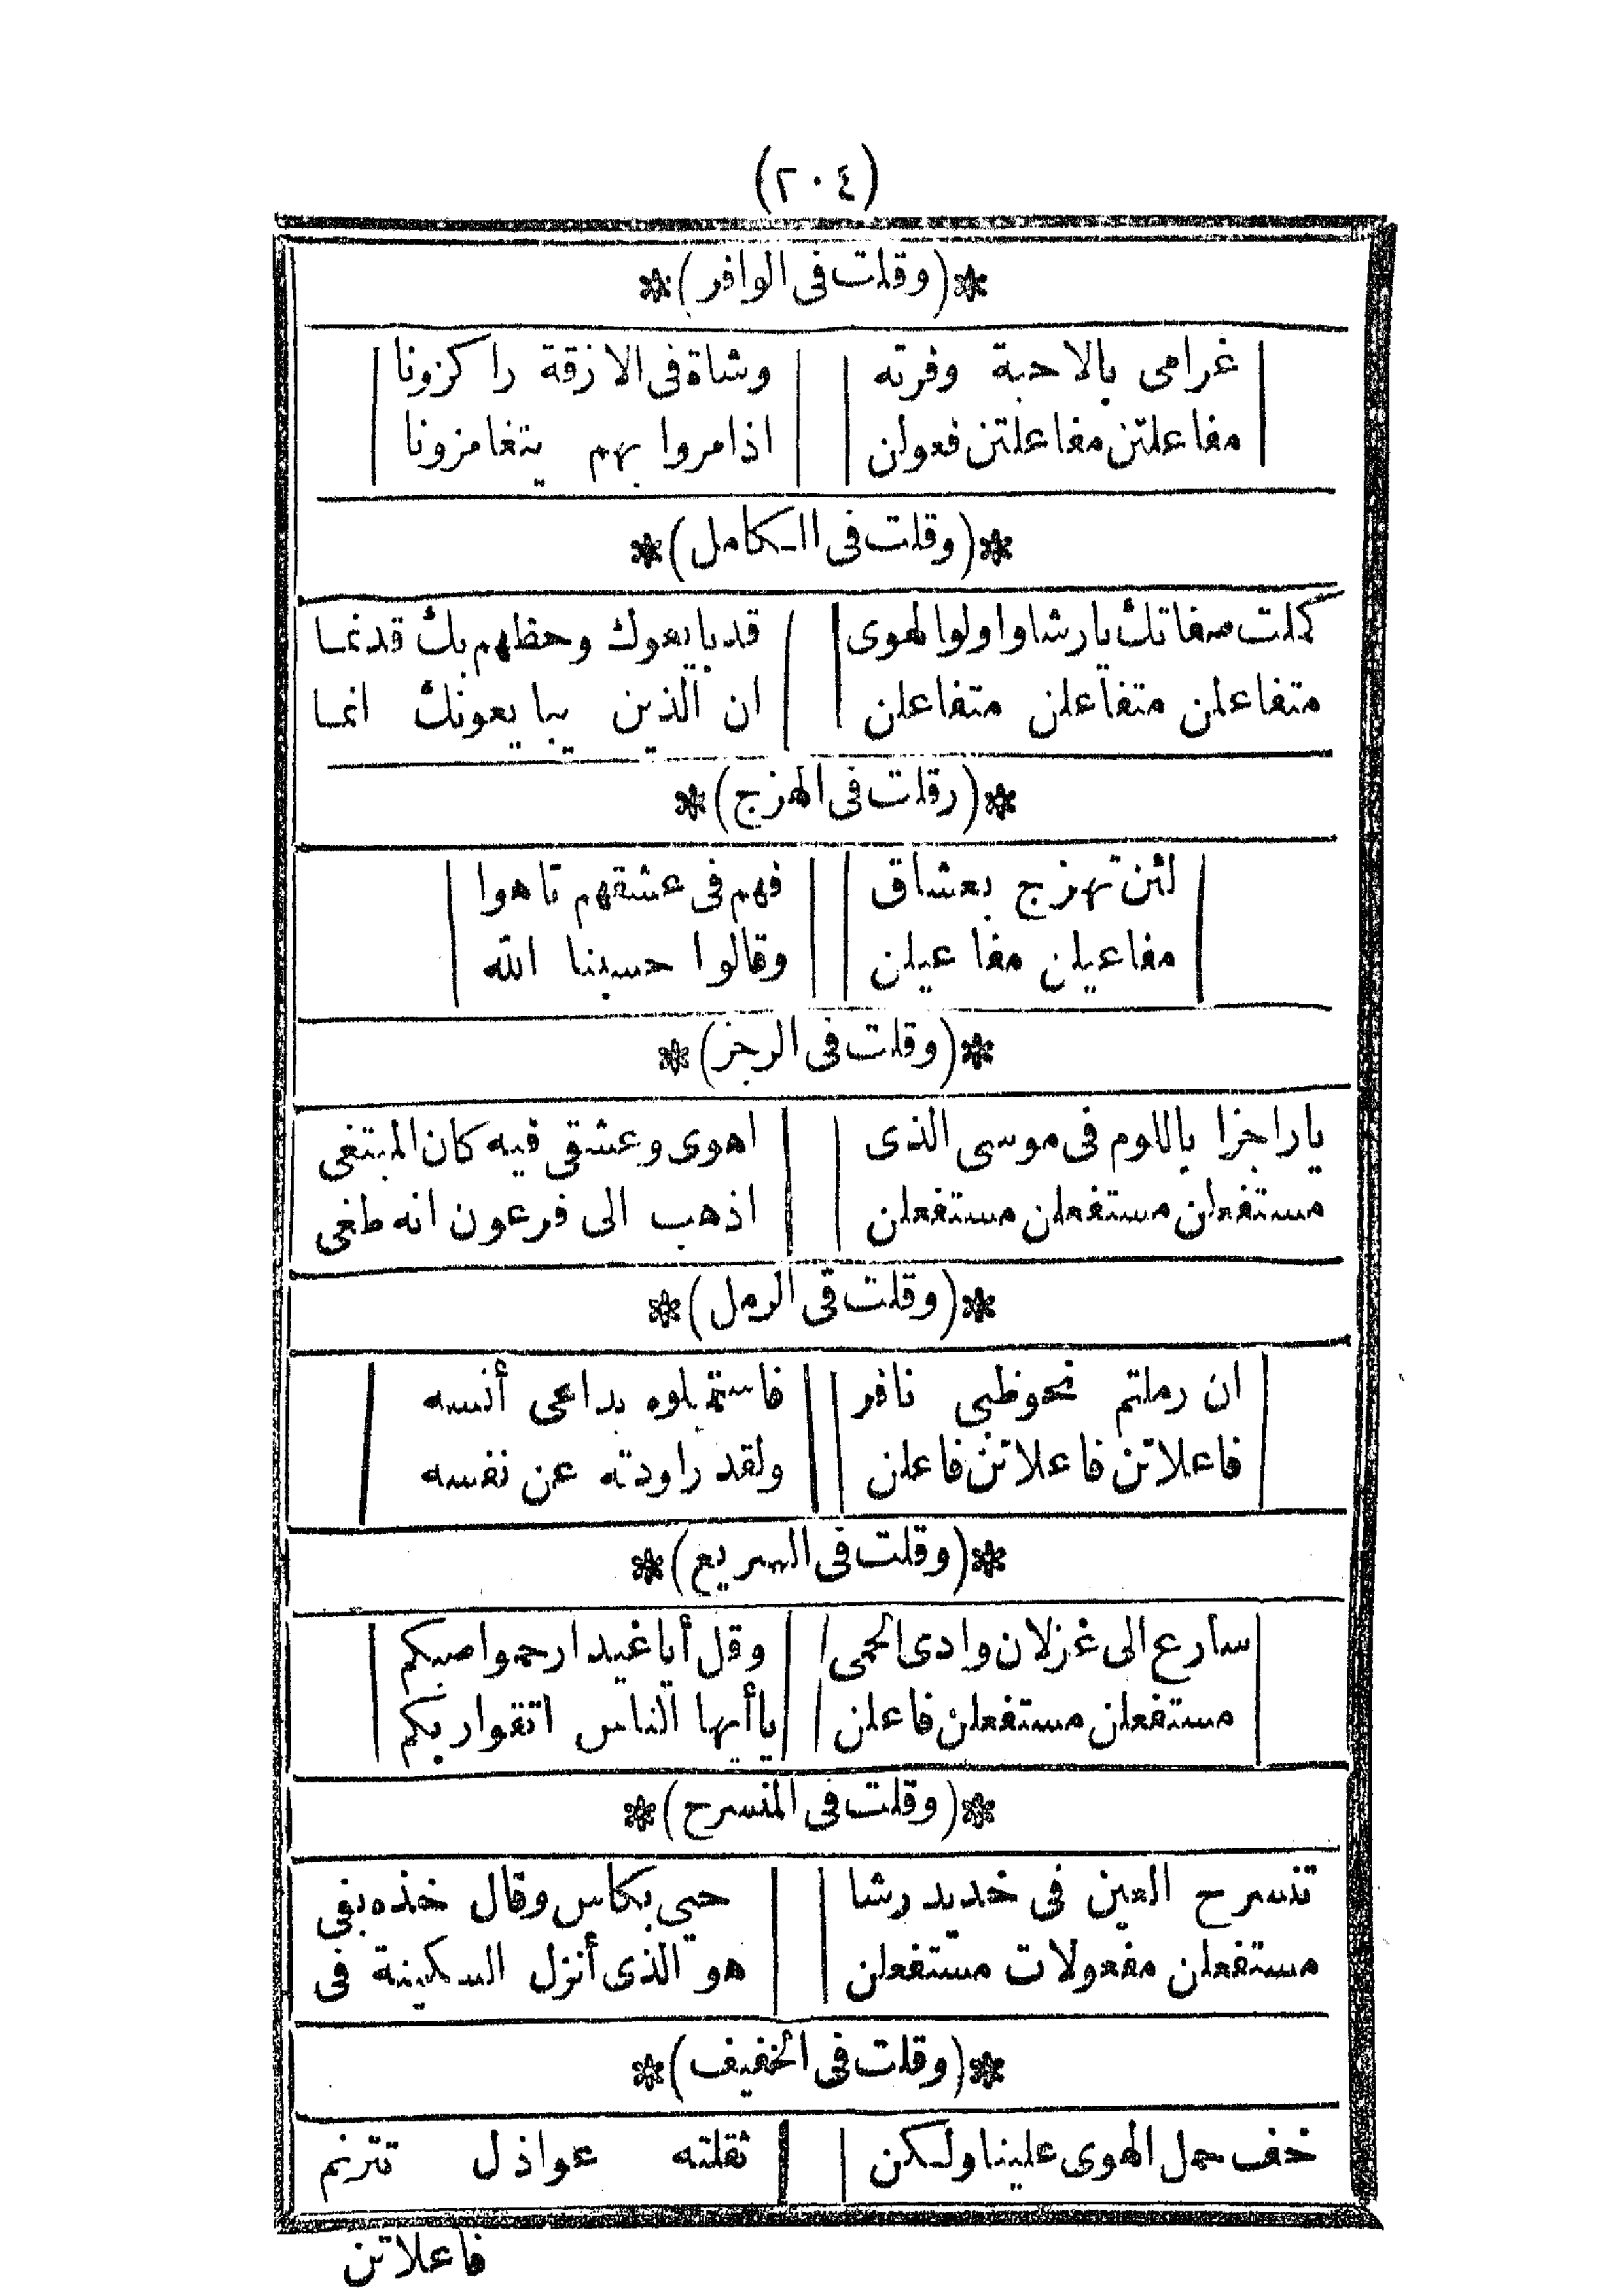 (٢٠٤)
*(وقلت فى الوافر)*
غرامى بالاحبة وفرته وشاة فى الازقة راكزونا
مفاعلتن مفاعلتن فعولن اذا مروا بهم يتغامزونا
*(وقلت فى الكامل)*
كملت صفاتك يا رشا واولوا الهوى قد بايعوك وحظهم بك قد نما
متفاعلن متفاعلن متفاعلن ان الذين يبايعونك انما
*(رقلت فى الهزج)*
لئن تهزج بعشاق فهم فى عشقهم تاهوا
مفاعيلن مفاعيلن وقالوا حسبنا الله
*(وقلت فى الرجز)*
يا راجزا باللوم فى موسى الذى اهوى وعشقى فيه كان المبتغى
مستفعلن مستفعلن مستفعلن اذهب الى فرعون انه طغى
*(وقلت فى الرمل)*
ان رملتم نحو ظبى نافر فاستميلوه بداعى أنسه
فاعلاتن فاعلاتن فاعلن ولقد راودته عن نفسه
*(وقلت فى السريع)*
سارع الى غزلان وادى الحمى وقل أيا غيد ارحموا صبكم
مستفعلن مستفعلن فاعلن يا أيها الناس اتقوا ربكم
*(وقلت فى المنسرح)*
تنسرح العين فى خديد رشا حيى بكاس وقال خذه بفى
مستفعلن مفعولات مستفعلن هو الذى أنزل السكينة فى
*(وقلت فى الخفيف)*
خف حمل الهوى علينا ولكن ثقلته عواذل تترنم
فاعلاتن